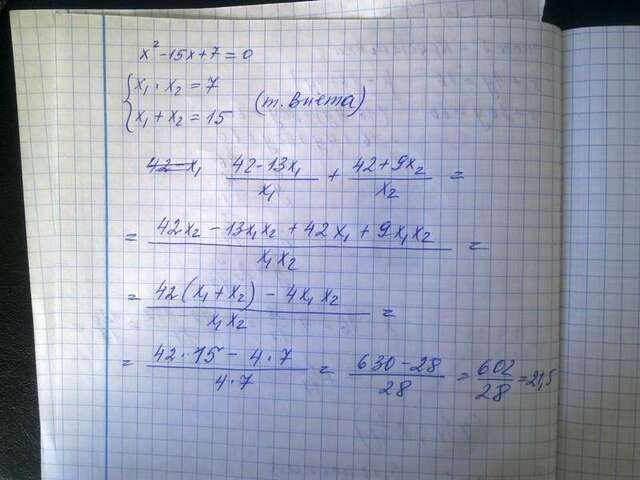 x² - 15x + 7 = 0
{ x₁ · x₂ = 7
{ x₁ + x₂ = 15 (т. Виета)
42 - x₁ (42 - 13x₁)/x₁ + (42 + 9x₂)/x₂ =
= (42x₂ - 13x₁x₂ + 42x₁ + 9x₁x₂)/(x₁x₂) =
= (42(x₁ + x₂) - 4x₁x₂)/(x₁x₂) =
= (42 · 15 - 4 · 7)/(4 · 7) = (630 - 28)/28 = 602/28 = 21,5